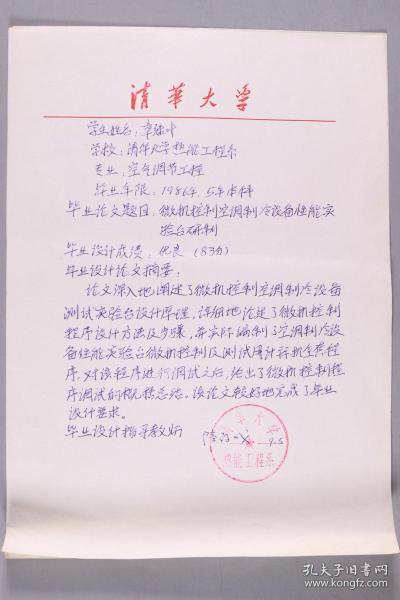 清華大学
学生姓名：章
学校：清华大学热能工程系
专业：空气调节工程
毕业年限：1986年，5年本科
毕业论文题目：微机控制空调制冷设备性能实
验台研制
毕业设计成绩：优良（83分）
毕业设计论文摘要：
论文深入地阐述了微机控制空调制冷设备
测试实验台设计原理，详细地论述了微机控制
程序设计方法及步骤，并实际编制了空调制冷设
备性能实验台微机控制及测试用计算机全套程
序。对该程序进行调试之后，给出了微机控制程
序调试的概括总结。该论文较好地完成了毕业
设计要求。
毕业设计指导教师
清华大学
热能工程系
孔夫子旧书网
www.kongfz.com